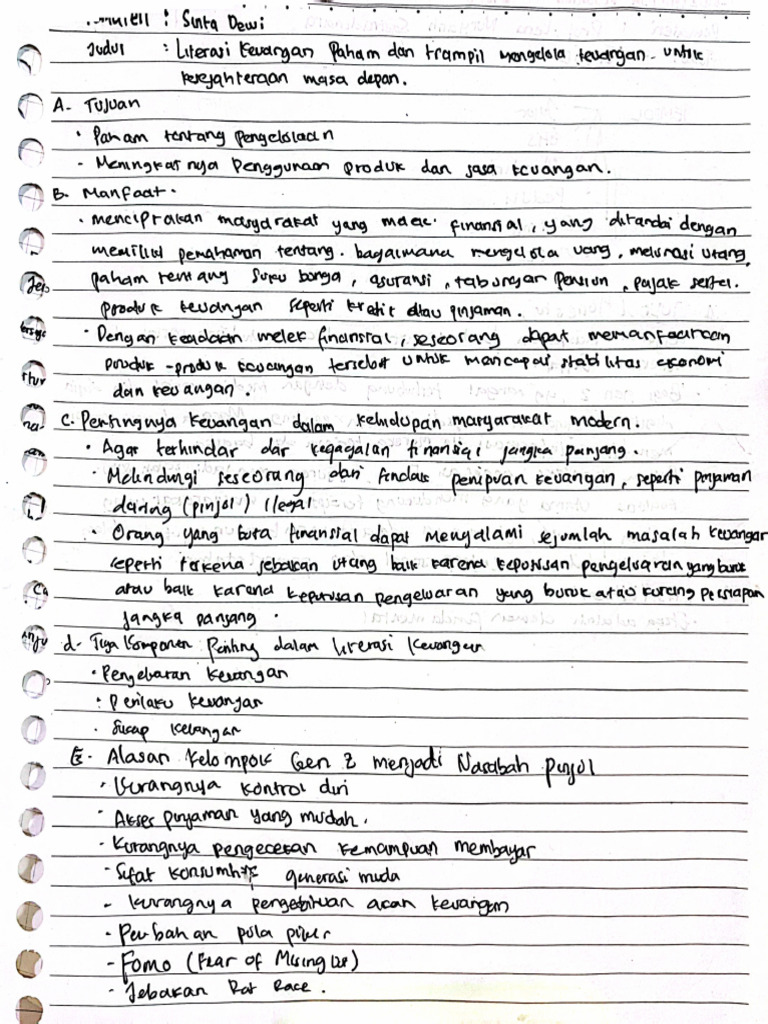 : Sinta Dewi
Judul : Literasi Keuangan Paham dan trampil mengelola keuangan untuk
kesejahteraan masa depan.
A. Tujuan
• Paham tentang pengelolaan
- Meningkatnya Penggunaan produk dan jasa keuangan.
B. Manfaat.
• menciptakan masyarakat yang melek finansial, yang ditandai dengan
memiliki pemahaman tentang. bagaimana mengelola uang, melunasi utang,
paham tentang suku bunga, asuransi, tabungan pensiun, pajak serta.
produk keuangan seperti kredit atau pinjaman.
• Dengan keadaan melek finansial, seseorang dapat memanfaatkan
produk-produk keuangan tersebut untuk mencapai stabilitas ekonomi
dan keuangan.
C. Pentingnya keuangan dalam kehidupan masyarakat modern.
• Agar terhindar dar kegagalan finansial jangka panjang.
• Melindungi seseorang dari tindak penipuan keuangan, seperti pinjaman
daring (pinjol) ilegal
• Orang yang buta finansial dapat mengalami sejumlah masalah keuangan
seperti terkena jebakan utang baik karena keputusan pengeluaran yang buruk
atau baik karena keputusan pengeluaran yang buruk atau kurang persiapan
jangka panjang.
d. Tiga komponen Penting dalam literasi keuangan
• Penyebaran keuangan
: Perilaku keuangan
• Sikap keuangan
E. Alasan kelompok Gen Z menjadi Nasabah pinjol
• Kurangnya kontrol diri
- Akses pinjaman yang mudah.
- Kurangnya pengecekan kemampuan membayar
- Sifat konsumtif generasi muda
- kurangnya pengetahuan akan keuangan
- Perubahan pola pikir
- Fomo (Fear of Missing Out)
- Jebakan Rat Race.